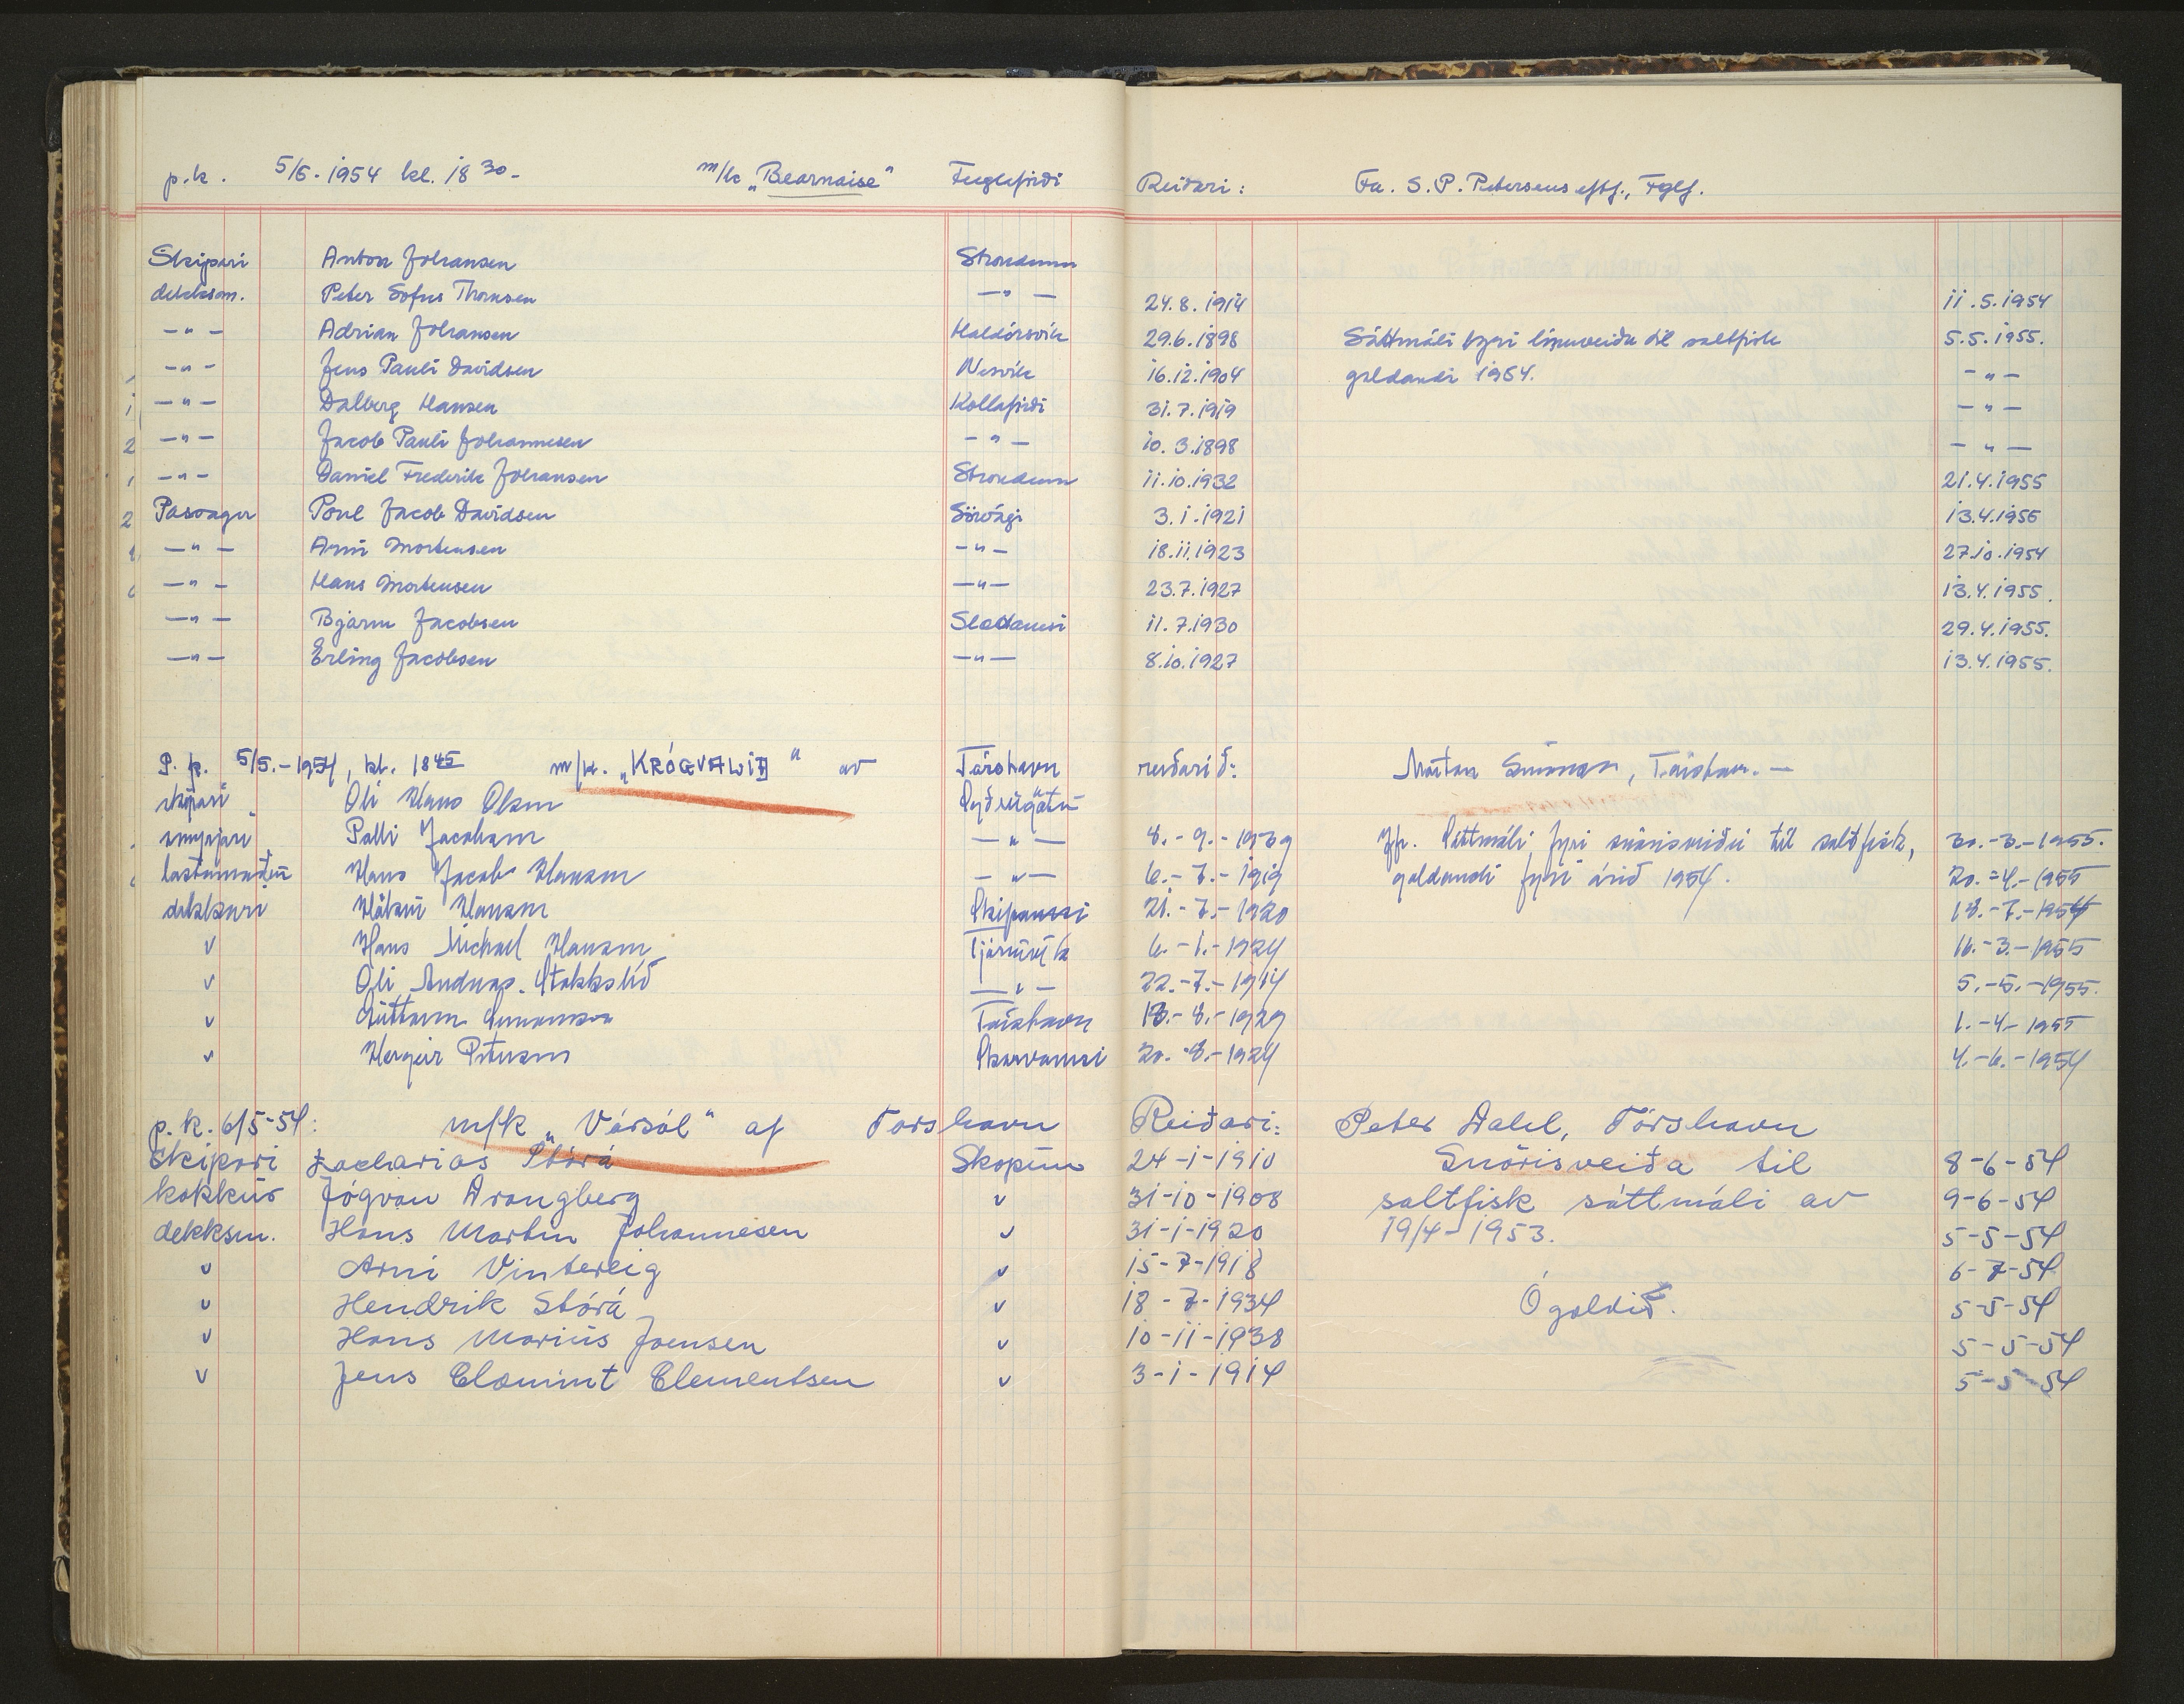 p.k. 5/5-1954 kl. 18 30- m/k „Bearnaise" Fuglefirði Reiðari: Fa. S. P. Petersens eftf., Fglf.
Skipari Anton Johansen Strondum
dekksm. Peter Sofus Thomsen —"— 24.8.1914 11.5.1954
—"— Adrian Johansen Haldórsvík 29.6.1898 Sáttmáli fyri línuveiðu til saltfisk 5.5.1955.
—"— Jens Pauli Davidsen Nesvík 16.12.1904 galdandi 1954. —"—
—"— Dalberg Hansen Kollafirði 31.7.1919 —"—
—"— Jacob Pauli Johannesen —"— 10.3.1898 —"—
—"— Daniel Frederik Johansen Strondum 11.10.1932 21.4.1955
Pasager Poul Jacob Davidsen Sörvági 3.1.1921 13.4.1956
—"— Arni Mortensen —"— 18.11.1923 27.10.1954
—"— Hans Mortensen —"— 23.7.1927 13.4.1955.
—"— Bjarni Jacobsen 11.7.1930 29.4.1955.
—"— Erling Jacobsen —"— 8.10.1927 13.4.1955.
P.k. 5/5.-1954, kl. 18 45 m/k. „KRÓGVALIÐ" av Tórshavn reiðarið: Tórshavn.-
skipari Oli Hans Olsen Syðrugøtu
Palli Jacobsen —"— 8.-9.-1939 Jfr. Sáttmáli fyri snørisveiðu til saltfisk, 30.-3.-1955.
Hans Jacob Hansen —"— 6.-7.-1919 galdandi fyri árið 1954. 20.-4.-1955
dekkari Hákun Hansen Skipanesi 21.-7.-1920 18.-7.-1954
v Hans Michael Hansen Tjørnuvík 6.-1.-1924 16.-3.-1955
v Oli Andreas Stakkslíð —"— 22.-7.-1914 5.-5.-1955.
v Guttorm Tórshavn 18.-8.-1929 1.-4-1955
v Hergeir Petersen Skarvanesi 20.-8.-1924 4.-6.-1954
p.k. 6/5-54: m/k „Vársól" af Torshavn Reiðari: Peter Dahl, Tórshavn
Skipari Zacharias Stórá Skopun 24-1-1910 Snörisveiða til 8-6-54
kokkur Jógvan Drangberg v 31-10-1908 saltfisk sáttmáli av 9-6-54
dekksm. Hans Martin Johannesen v 31-1-1920 19/4-1953. 5-5-54
v Arni Vintereig v 15-7-1918 6-7-54
v Hendrik Stórá v 18-7-1934 Ógoldið. 5-5-54
v Hans Marius Joensen v 10-11-1938 5-5-54
v Jens Clæmint Clementsen v 3-1-1914 5-5-54